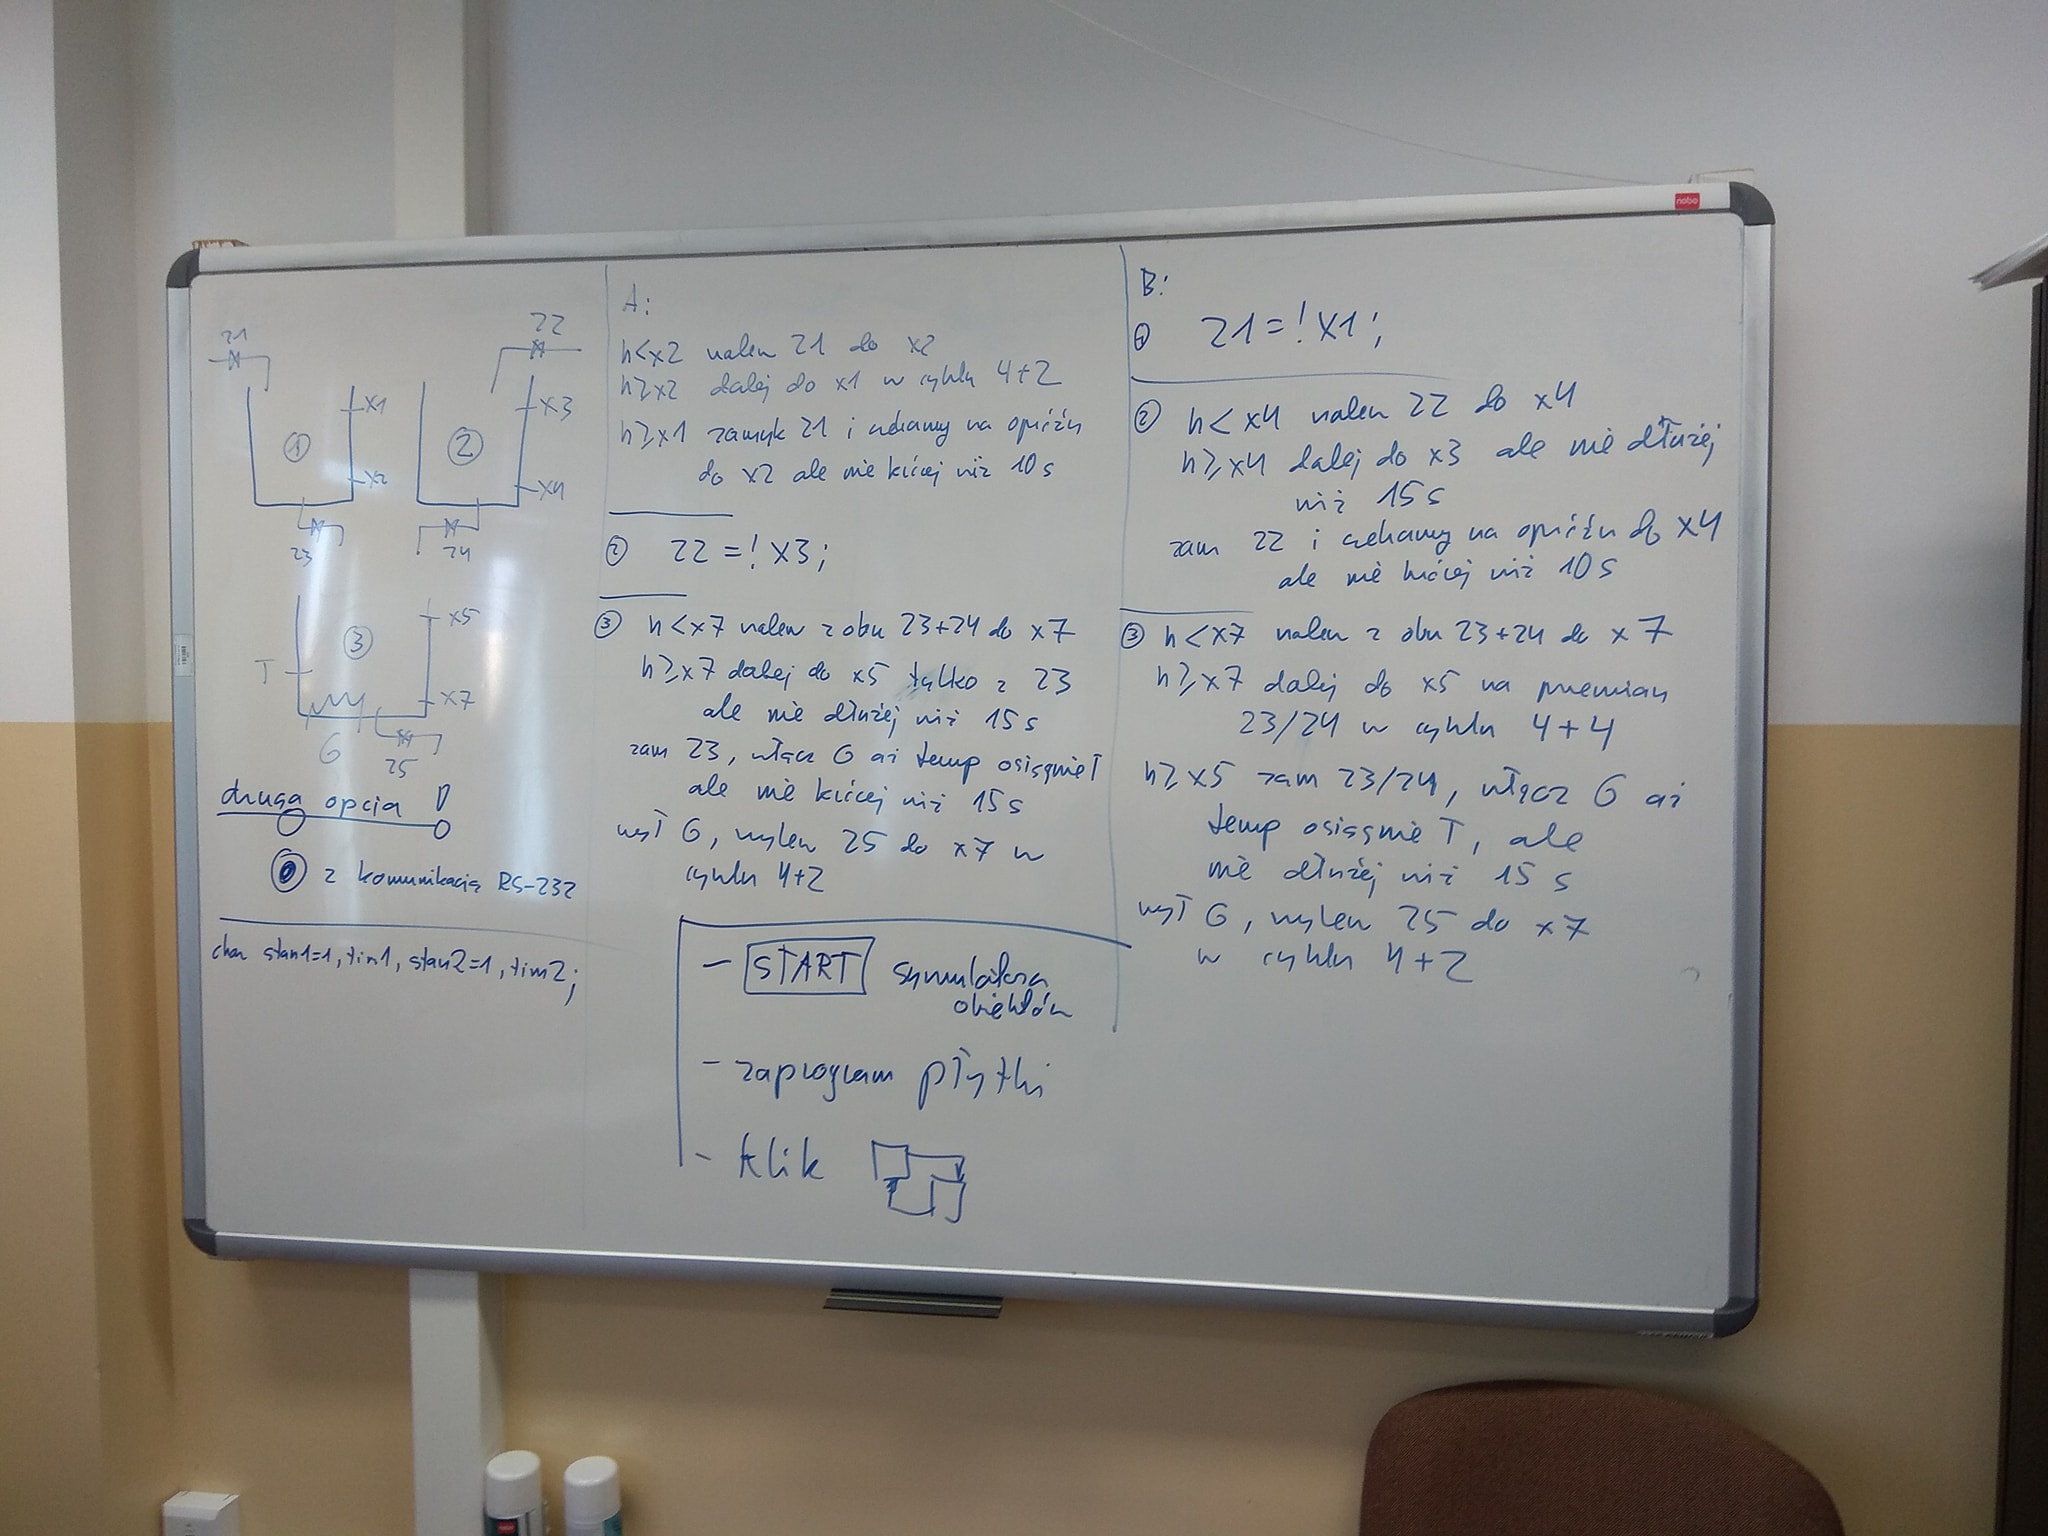 Z1
Z2
x1
x3
1
2
x2
x4
Z3
Z4
x5
3
T
x7
G
Z5
druga opcja
z komunikacją RS-232
char stan1=1, tim1, stan2=1, tim2;
A:
h<x2 nalew Z1 do x2
h≥x2 dalej do x1 w cyklu 4+2
h≥x1 zamyk Z1 i czekamy na opróżn
do x2 ale nie krócej niż 10s
2 Z2=!x3;
3 h<x7 nalew z obu Z3+Z4 do x7
h≥x7 dalej do x5 tylko z Z3
ale nie dłużej niż 15s
zam Z3, włącz G aż temp osiągnie T
ale nie krócej niż 15s
wył G, wylew Z5 do x7 w
cyklu 4+2
- START symulatora
obiektów
- zaprogram płytki
- klik
B:
1 Z1=!x1;
2 h<x4 nalew Z2 do x4
h≥x4 dalej do x3 ale nie dłużej
niż 15s
zam Z2 i czekamy na opróżn do x4
ale nie krócej niż 10s
3 h<x7 nalew z obu Z3+Z4 do x7
h≥x7 dalej do x5 na przemian
Z3/Z4 w cyklu 4+4
h≥x5 zam Z3/Z4, włącz G aż
temp osiągnie T, ale
nie dłużej niż 15 s
wył G, wylew Z5 do x7
w cyklu 4+2
nobo